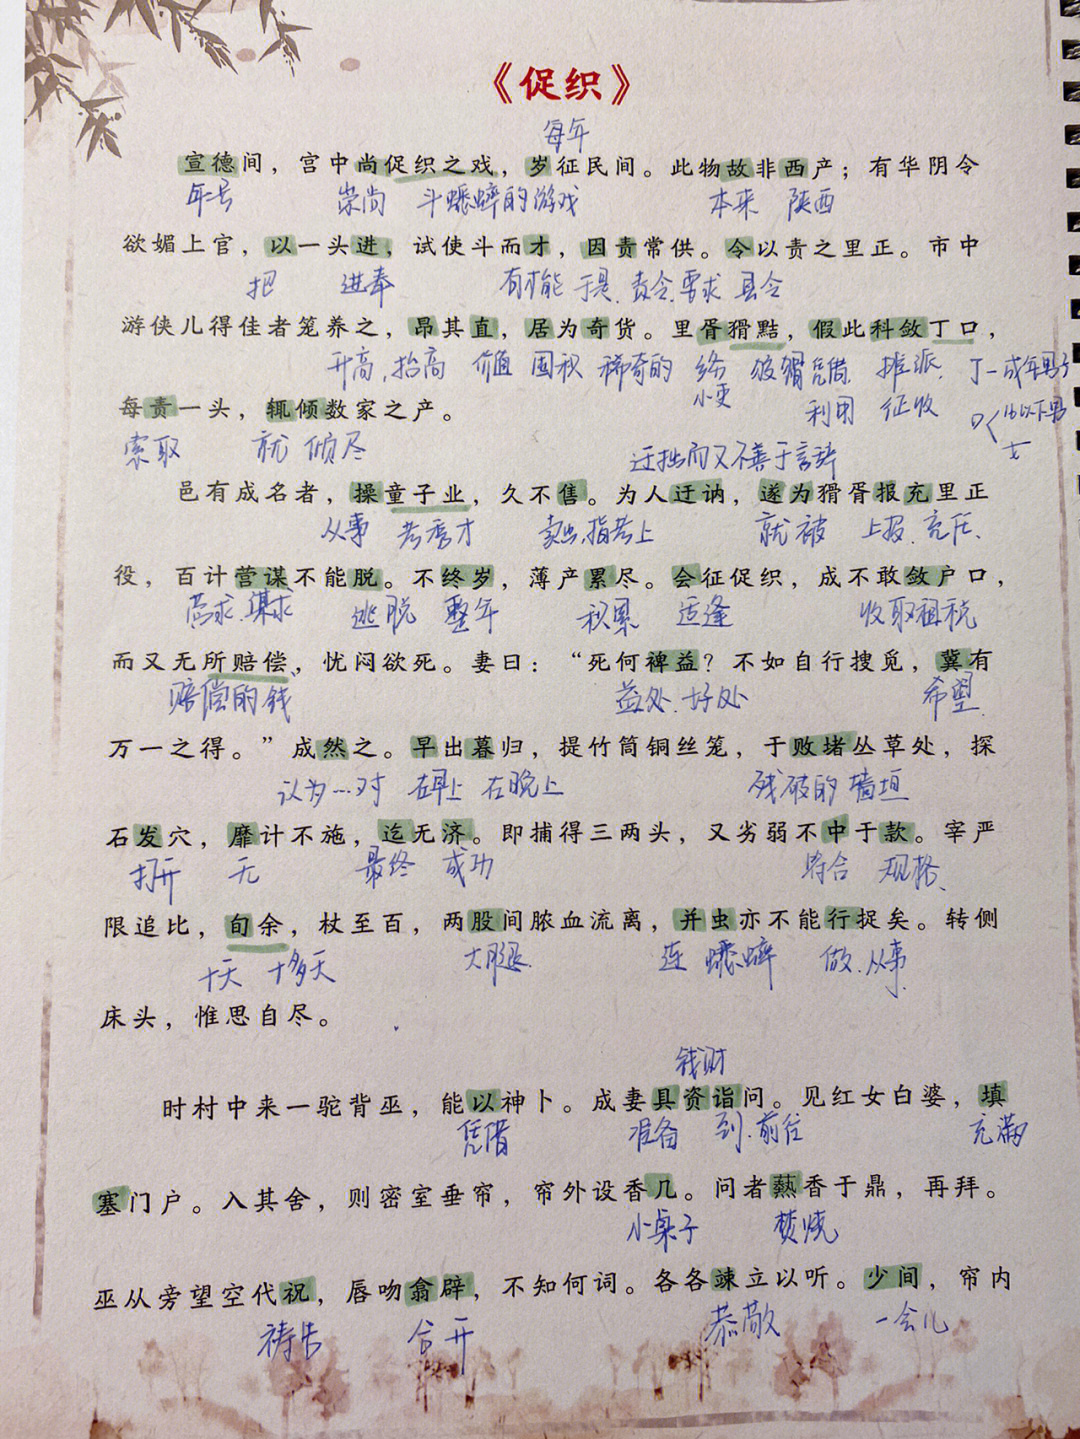 《促织》
每年
宣德间，宫中尚促织之戏，岁征民间。此物故非西产；有华阴令
年号 崇尚 斗蟋蟀的游戏 本来 陕西
欲媚上官，以一头进，试使斗而才，因责常供。令以责之里正。市中
把 进奉 有才能 于是 责令.要求 县令
游侠儿得佳者笼养之，昂其直，居为奇货。里胥猾黠，假此科敛丁口，
升高,抬高 价值 囤积 稀奇的 小吏 狡猾 凭借 利用 摊派 征收 丁—成年男子
每责一头，辄倾数家之产。
索取 就 倾尽 迂拙而又不善于言辞
邑有成名者，操童子业，久不售。为人迂讷，遂为猾胥报充里正
从事 考秀才 卖出,指考上 就 被 上报.充任.
役，百计营谋不能脱。不终岁，薄产累尽。会征促织，成不敢敛户口，
营求.谋求 逃脱 整年 积累 适逢 收取租税
而又无所赔偿，忧闷欲死。妻曰：“死何裨益？不如自行搜觅，冀有
赔偿的钱 益处.好处 希望.
万一之得。”成然之。早出暮归，提竹筒铜丝笼，于败堵丛草处，探
认为…对 在早上 在晚上 残破的 墙垣
石发穴，靡计不施，迄无济。即捕得三两头，又劣弱不中于款。宰严
打开 无 最终 成功 符合 规格、
限追比，旬余，杖至百，两股间脓血流离，并虫亦不能行捉矣。转侧
十天 十多天 大腿. 连 蟋蟀 做.从事.
床头，惟思自尽。
钱财
时村中来一驼背巫，能以神卜。成妻具资诣问。见红女白婆，填
凭借 准备 到.前往 充满
塞门户。入其舍，则密室垂帘，帘外设香几。问者爇香于鼎，再拜。
小桌子 焚烧
巫从旁望空代祝，唇吻翕辟，不知何词。各各竦立以听。少间，帘内
祷告 合 开 恭敬 一会儿